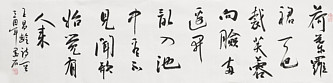 荷葉羅
裙一色
裁芙蓉
向臉兩
邊開
亂入池
中看不
見聞歌
始覺有
人來
王昌齡詩